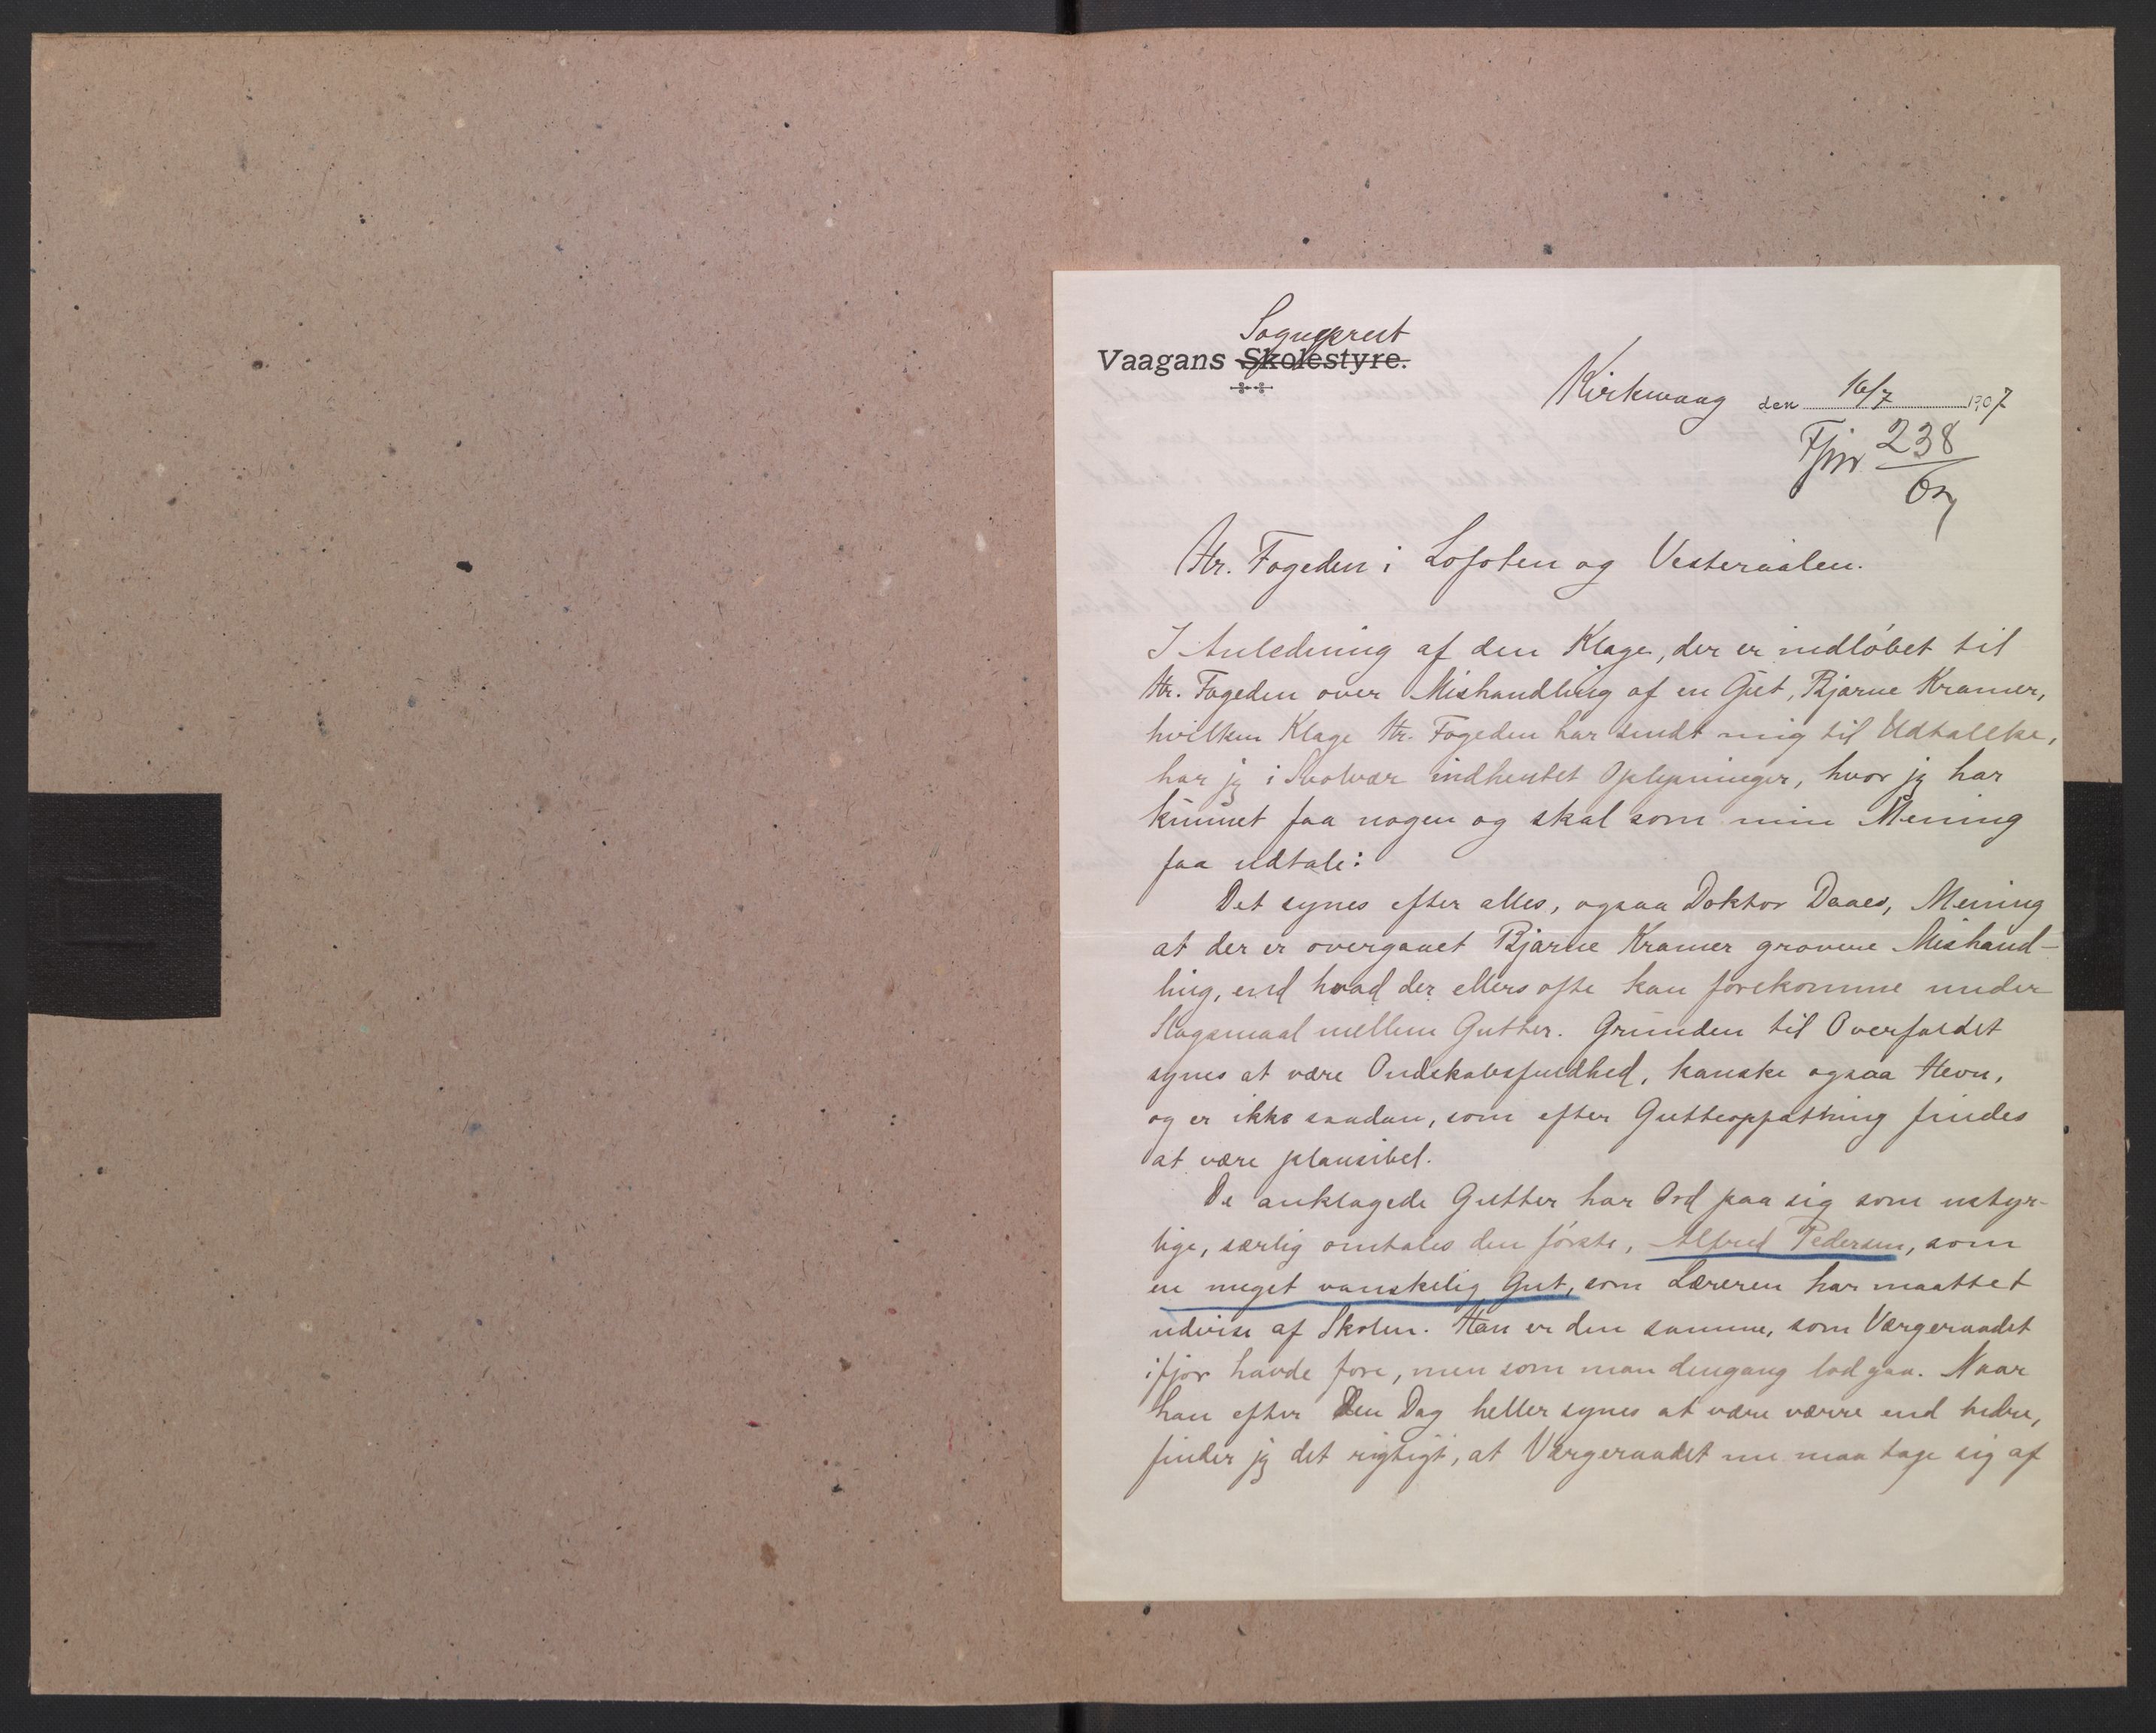 Sogneprest
Vaagans Skolestyre.
Kirkvaag den 16/7 1907
Fjnr 238/07
Hr. Fogeden i Lofoten og Vesteraalen.
I Anledning af den Klage, der er indløbet til
Hr. Fogeden over Mishandling af en Gut, Bjarne Kramer,
hvilken Klage Hr. Fogeden har sendt mig til Udtalelse,
har jeg i Svolvær indhentet Oplysninger, hvor jeg har
kunnet faa nogen og skal som min Mening
faa udtale:
Det synes efter alles, ogsaa Doktor Daaes, Mening
at der er overgaaet Bjarne Kramer grovere Mishand-
ling, end hvad der ellers ofte kan forekomme under
Slagsmaal mellem Gutter. Grunden til Overfaldet
synes at være Ondskabsfuldhed, kanske ogsaa Hevn,
og er ikke saadan, som efter Gutteopfatning findes
at være plausibel.
De anklagede Gutter har Ord paa sig som ustyr-
lige, særlig omtales den første, Alfred Pedersen, som
en meget vanskelig Gut, som Læreren har maattet
udvise af Skolen. Han er den samme, som Værgeraadet
ifjor havde fore, men som man dengang lod gaa. Naar
han efter den Dag heller synes at være værre end bedre,
finder jeg det rigtigt, at Værgeraadet nu maa tage sig af